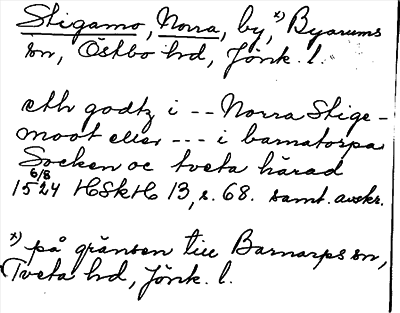 Stigamo, Norra, by, x) Byarums
sn, Östbo hd, Jönk. l.
eth godtz i -- Norra Stige-
moot eller --- i barnatorpa
Socken oc tveta härad
6/8
1524 HSkH 13, s. 68. samt. avskr.
x) på gränsen till Barnarps sn,
Tveta hd, Jönk. l.